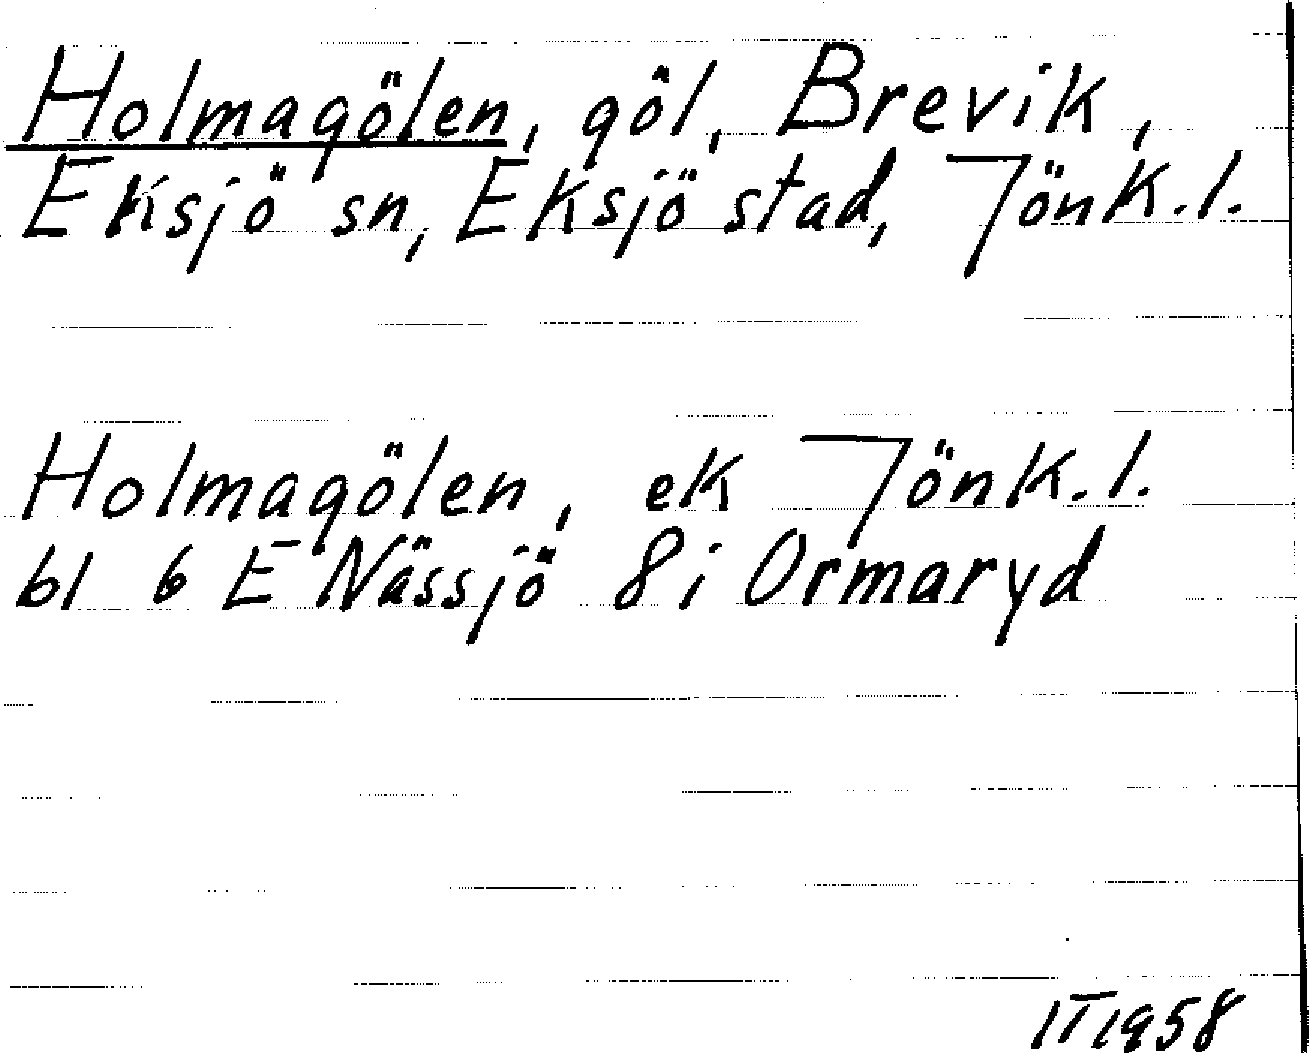 Holmagölen, göl, Brevik,
Eksjö sn, Eksjö stad, Jönk.l.
Holmagölen, ek Jönk.l.
bl 6 E Nässjö 8i Ormaryd
IT1958